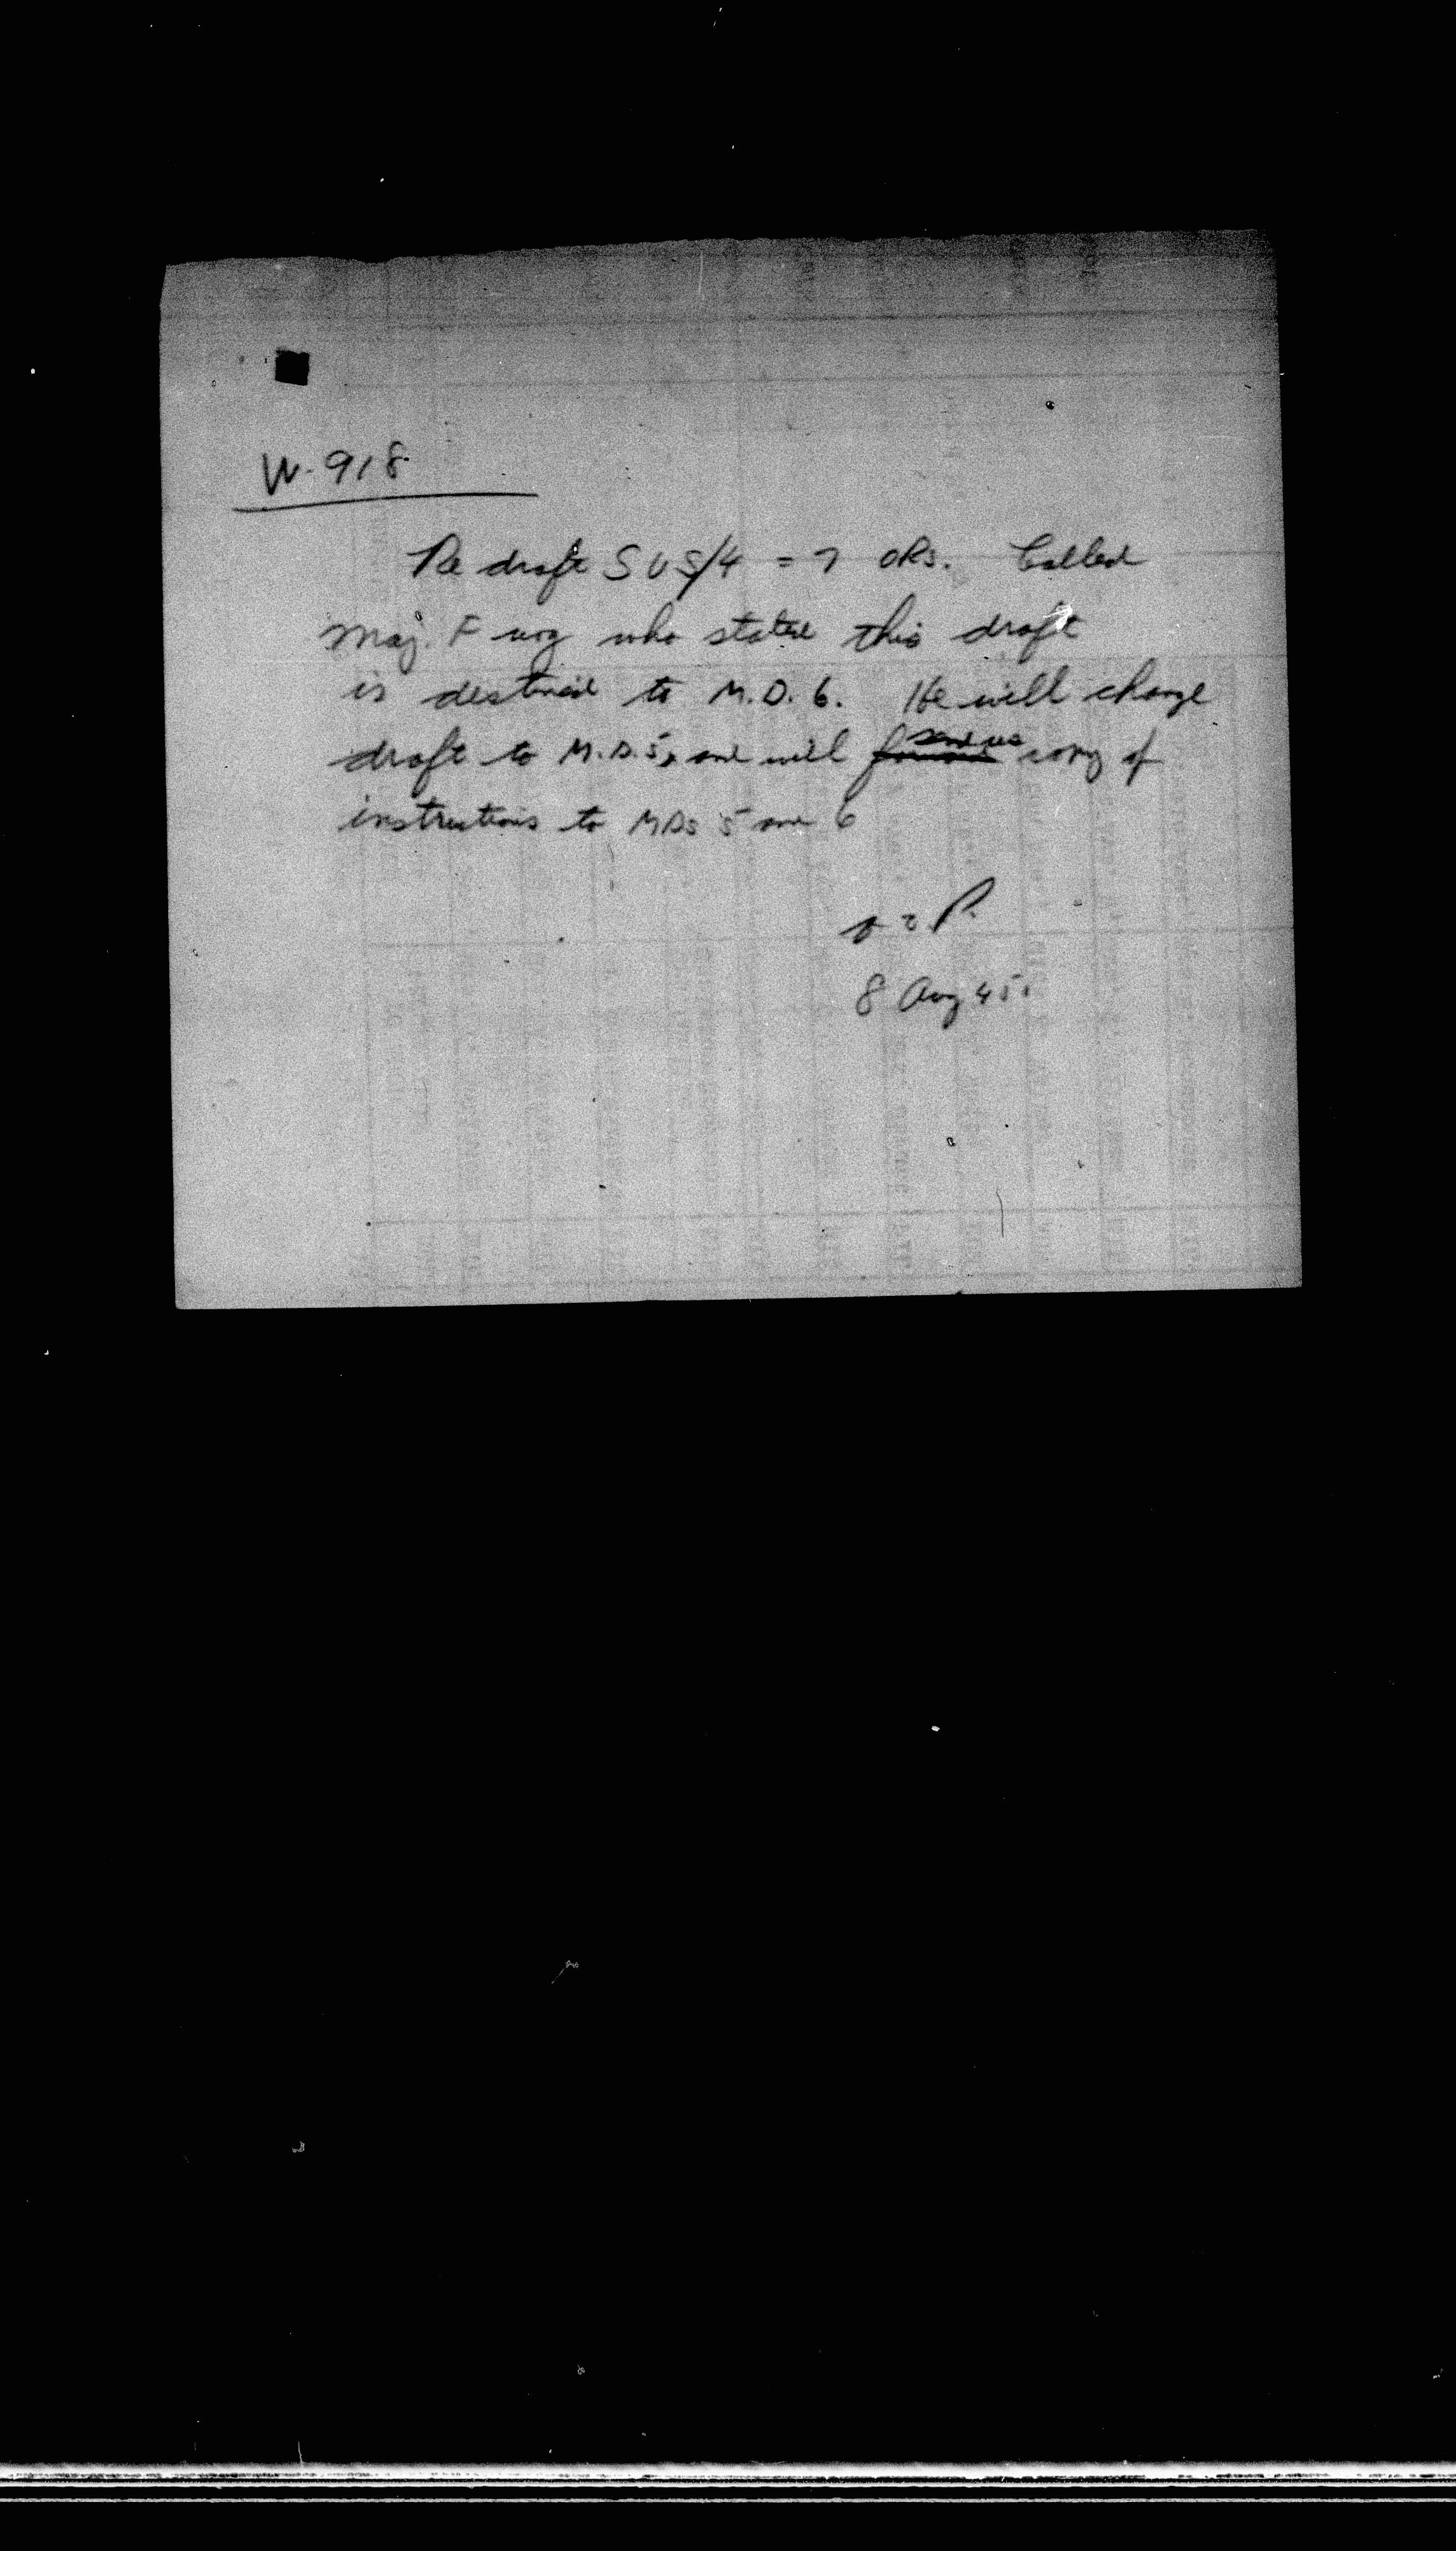 W-918
Re draft SUS/4 = 7 ORs. Called
Maj. Fury who stated this draft
is destined to M.D. 6. He will change
draft to M.D. 5, and will send us copy of
instructions to MDs 5 and 6
8 Aug 45.